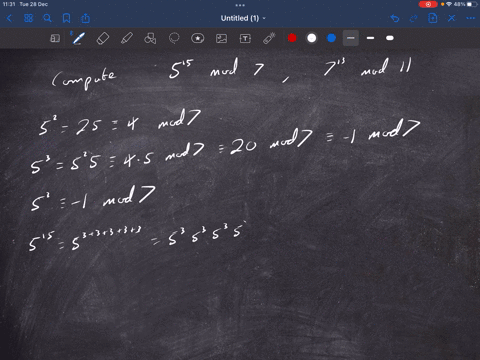 11:31 Tue 28 Dec
46%
Untitled (1)
Compute 5^15 mod 7 , 7^13 mod 11
5^2 = 25 ≡ 4 mod 7
5^3 = 5^2 5 ≡ 4·5 mod 7 ≡ 20 mod 7 ≡ -1 mod 7
5^3 ≡ -1 mod 7
5^15 = 5^3+3+3+3+3 = 5^3 5^3 5^3 5